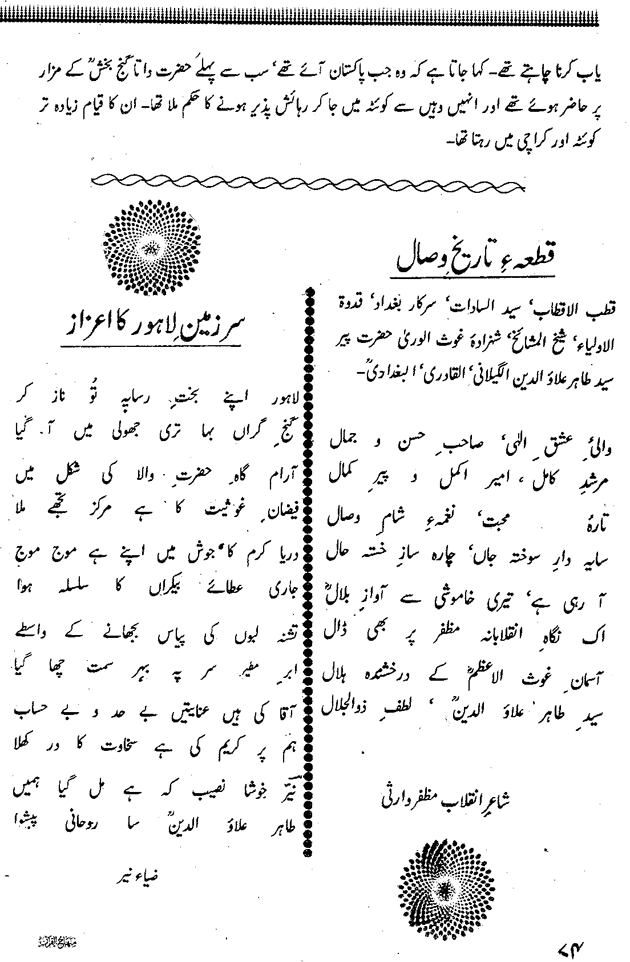 یاب کرنا چاہتے تھے۔ کہا جاتا ہے کہ وہ جب پاکستان آئے تھے‘ سب سے پہلے حضرت داتا گنج بخشؒ کے مزار
پر حاضر ہوئے تھے اور انہیں وہیں سے کوئٹہ میں جا کر رہائش پذیر ہونے کا حکم ملا تھا۔ ان کا قیام زیادہ تر
کوئٹہ اور کراچی میں رہتا تھا۔
قطعہء تاریخِ وصال
قطب الاقطاب‘ سید السادات‘ سرکار بغداد‘ قدوۃ
الاولیاء‘ شیخ المشائخ‘ شہزادۂ غوث الوریٰ حضرت پیر
سید طاہر علاؤ الدین الگیلانی‘ القادری‘ البغدادیؒ۔
والیٔ عشقِ الٰہی‘ صاحبِ حسن و جمال
مرشدِ کامل، امیرِ اکمل و پیرِ کمال
تارۂ محبت‘ نغمہءِ شامِ وصال
سایہ دارِ سوختہ جاں‘ چارہ سازِ خستہ حال
آ رہی ہے‘ تیری خاموشی سے آوازِ بلالؓ
اک نگاہِ انقلابانہ مظفر پر بھی ڈال
آسمانِ غوث الاعظمؓ کے درخشندہ ہلال
سیدِ طاہر علاؤ الدینؒ ‘ لطفِ ذوالجلال
شاعرِ انقلاب مظفر وارثی
سرزمینِ لاہور کا اعزاز
لاہور اپنے بختِ رسا پہ تُو ناز کر
گنجِ گراں بہا تری جھولی میں آ گیا
آرام گاہِ حضرتِ والا کی شکل میں
فیضانِ غوثیت کا ہے مرکز تجھے ملا
دریا کرم کا جوش میں اپنے ہے موج موج
جاری عطائے بیکراں کا سلسلہ ہوا
تشنہ لبوں کی پیاس بجھانے کے واسطے
ابرِ مطیر سر پہ بہر سمت چھا گیا
آقا کی ہیں عنایتیں بے حد و بے حساب
ہم پر کریم کی ہے سخاوت کا در کھلا
نیّر خوشا نصیب کہ ہے مل گیا ہمیں
طاہر علاؤ الدینؒ سا روحانی پیشوا
ضیاء نیر
منہاج القرآن
۷۴